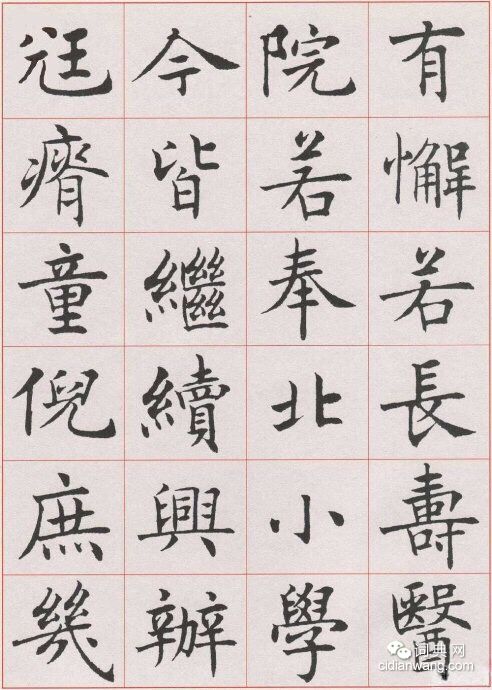 有懈若長壽醫
院若奉北小學
今皆繼續興辦
尩瘠童倪庶幾
词典网
cidianwang.com